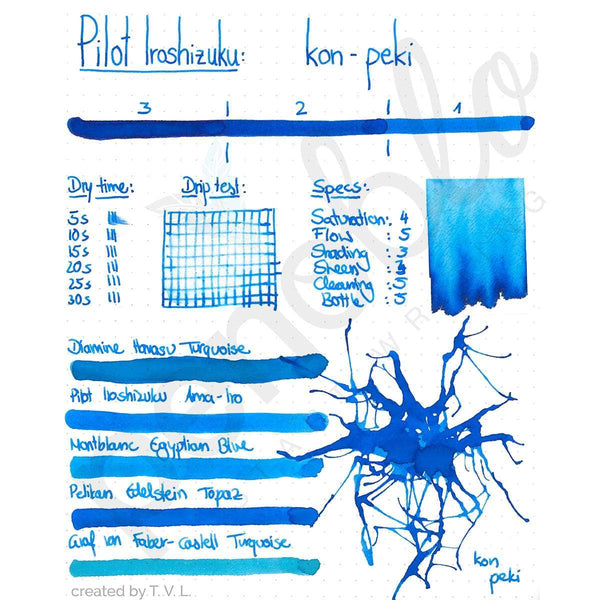 Pilot Iroshizuku: kon-peki
3 | 2 | 1
Dry time:
5s
10s
15s
20s
25s
30s
Drip test:
Specs:
Saturation: 4
Flow : 5
Shading : 3
Sheen : 3
Cleaning : 5
Bottle : 5
Diamine Havasu Turquoise
Pilot Iroshizuku Ama-iro
Montblanc Egyptian Blue
Pelikan Edelstein Topaz
Graf von Faber-Castell Turquoise
kon
peki
created by T. V. L.